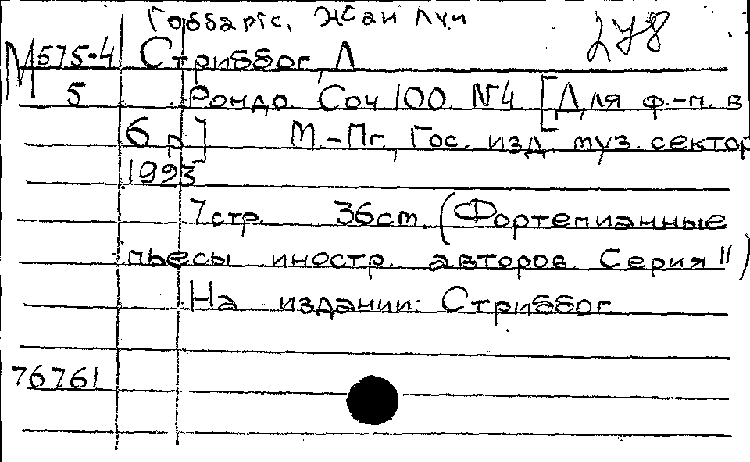 Гоббартс, Жан Луи
278
М 575-4 Стриббог, Л
5 Рондо. Соч 100. №4 [Для ф.-п. в
6 р.] М.-Пг., Гос. изд. муз. сектор
1993
7 стр. 36 cm. (Фортепианные
пьесы иностр. авторов. Серия II)
На издании: Стриббог
76761